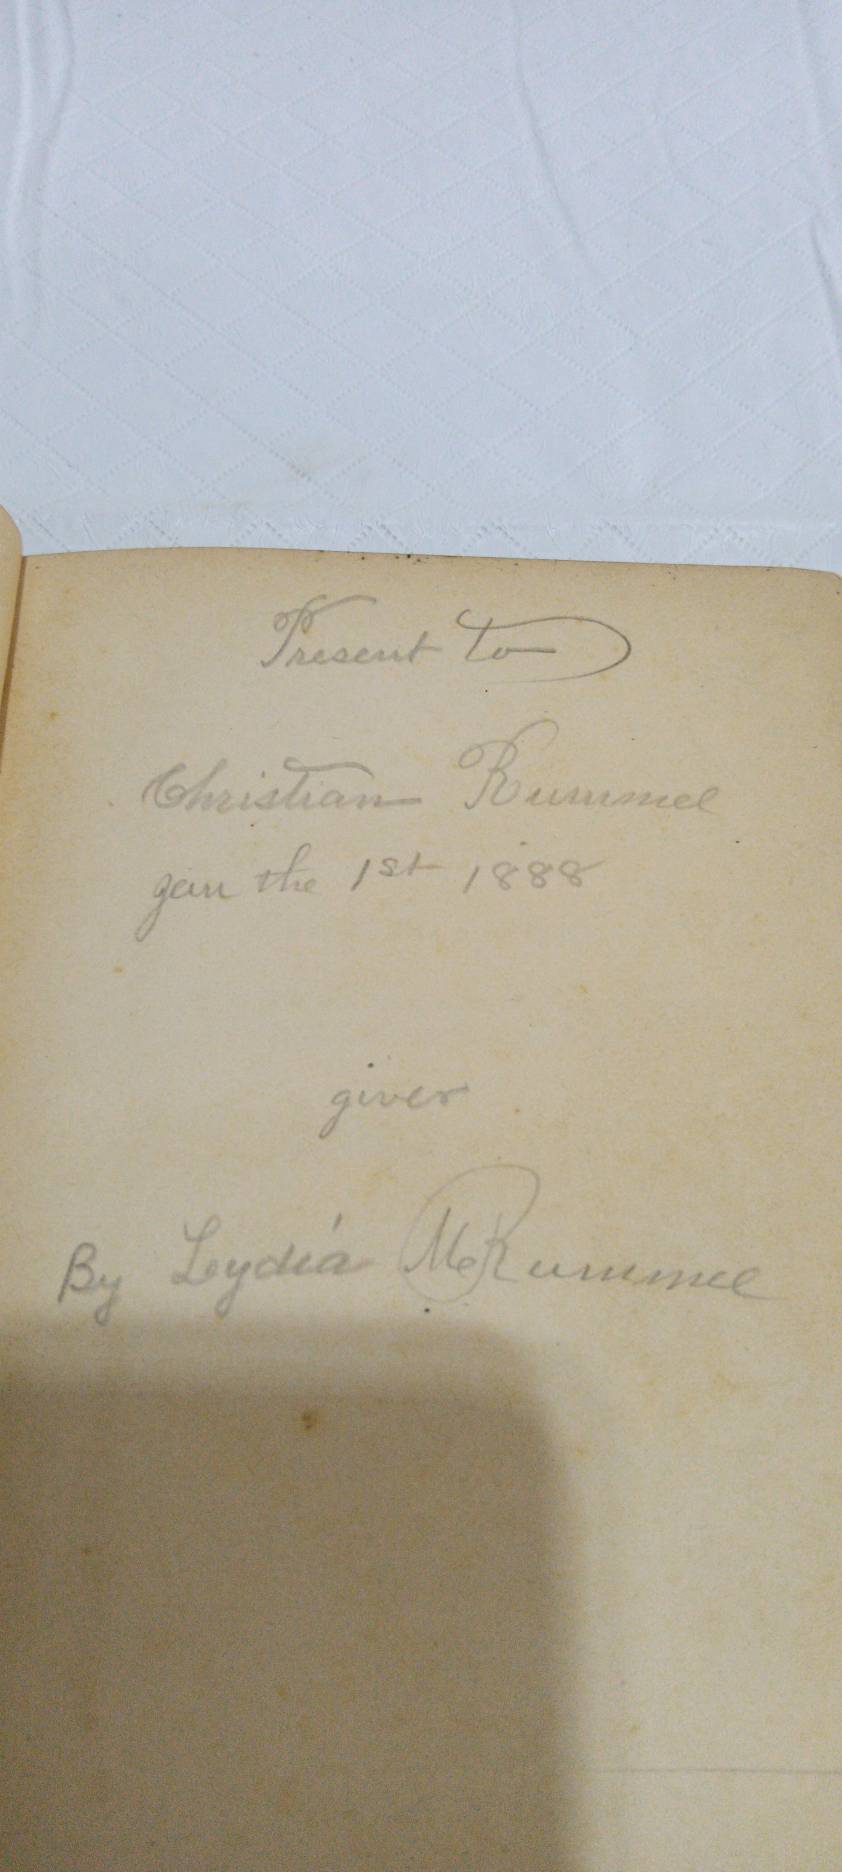 Present to
Christian Rummel
Jan the 1st 1888
giver
By Lydia M Rummel